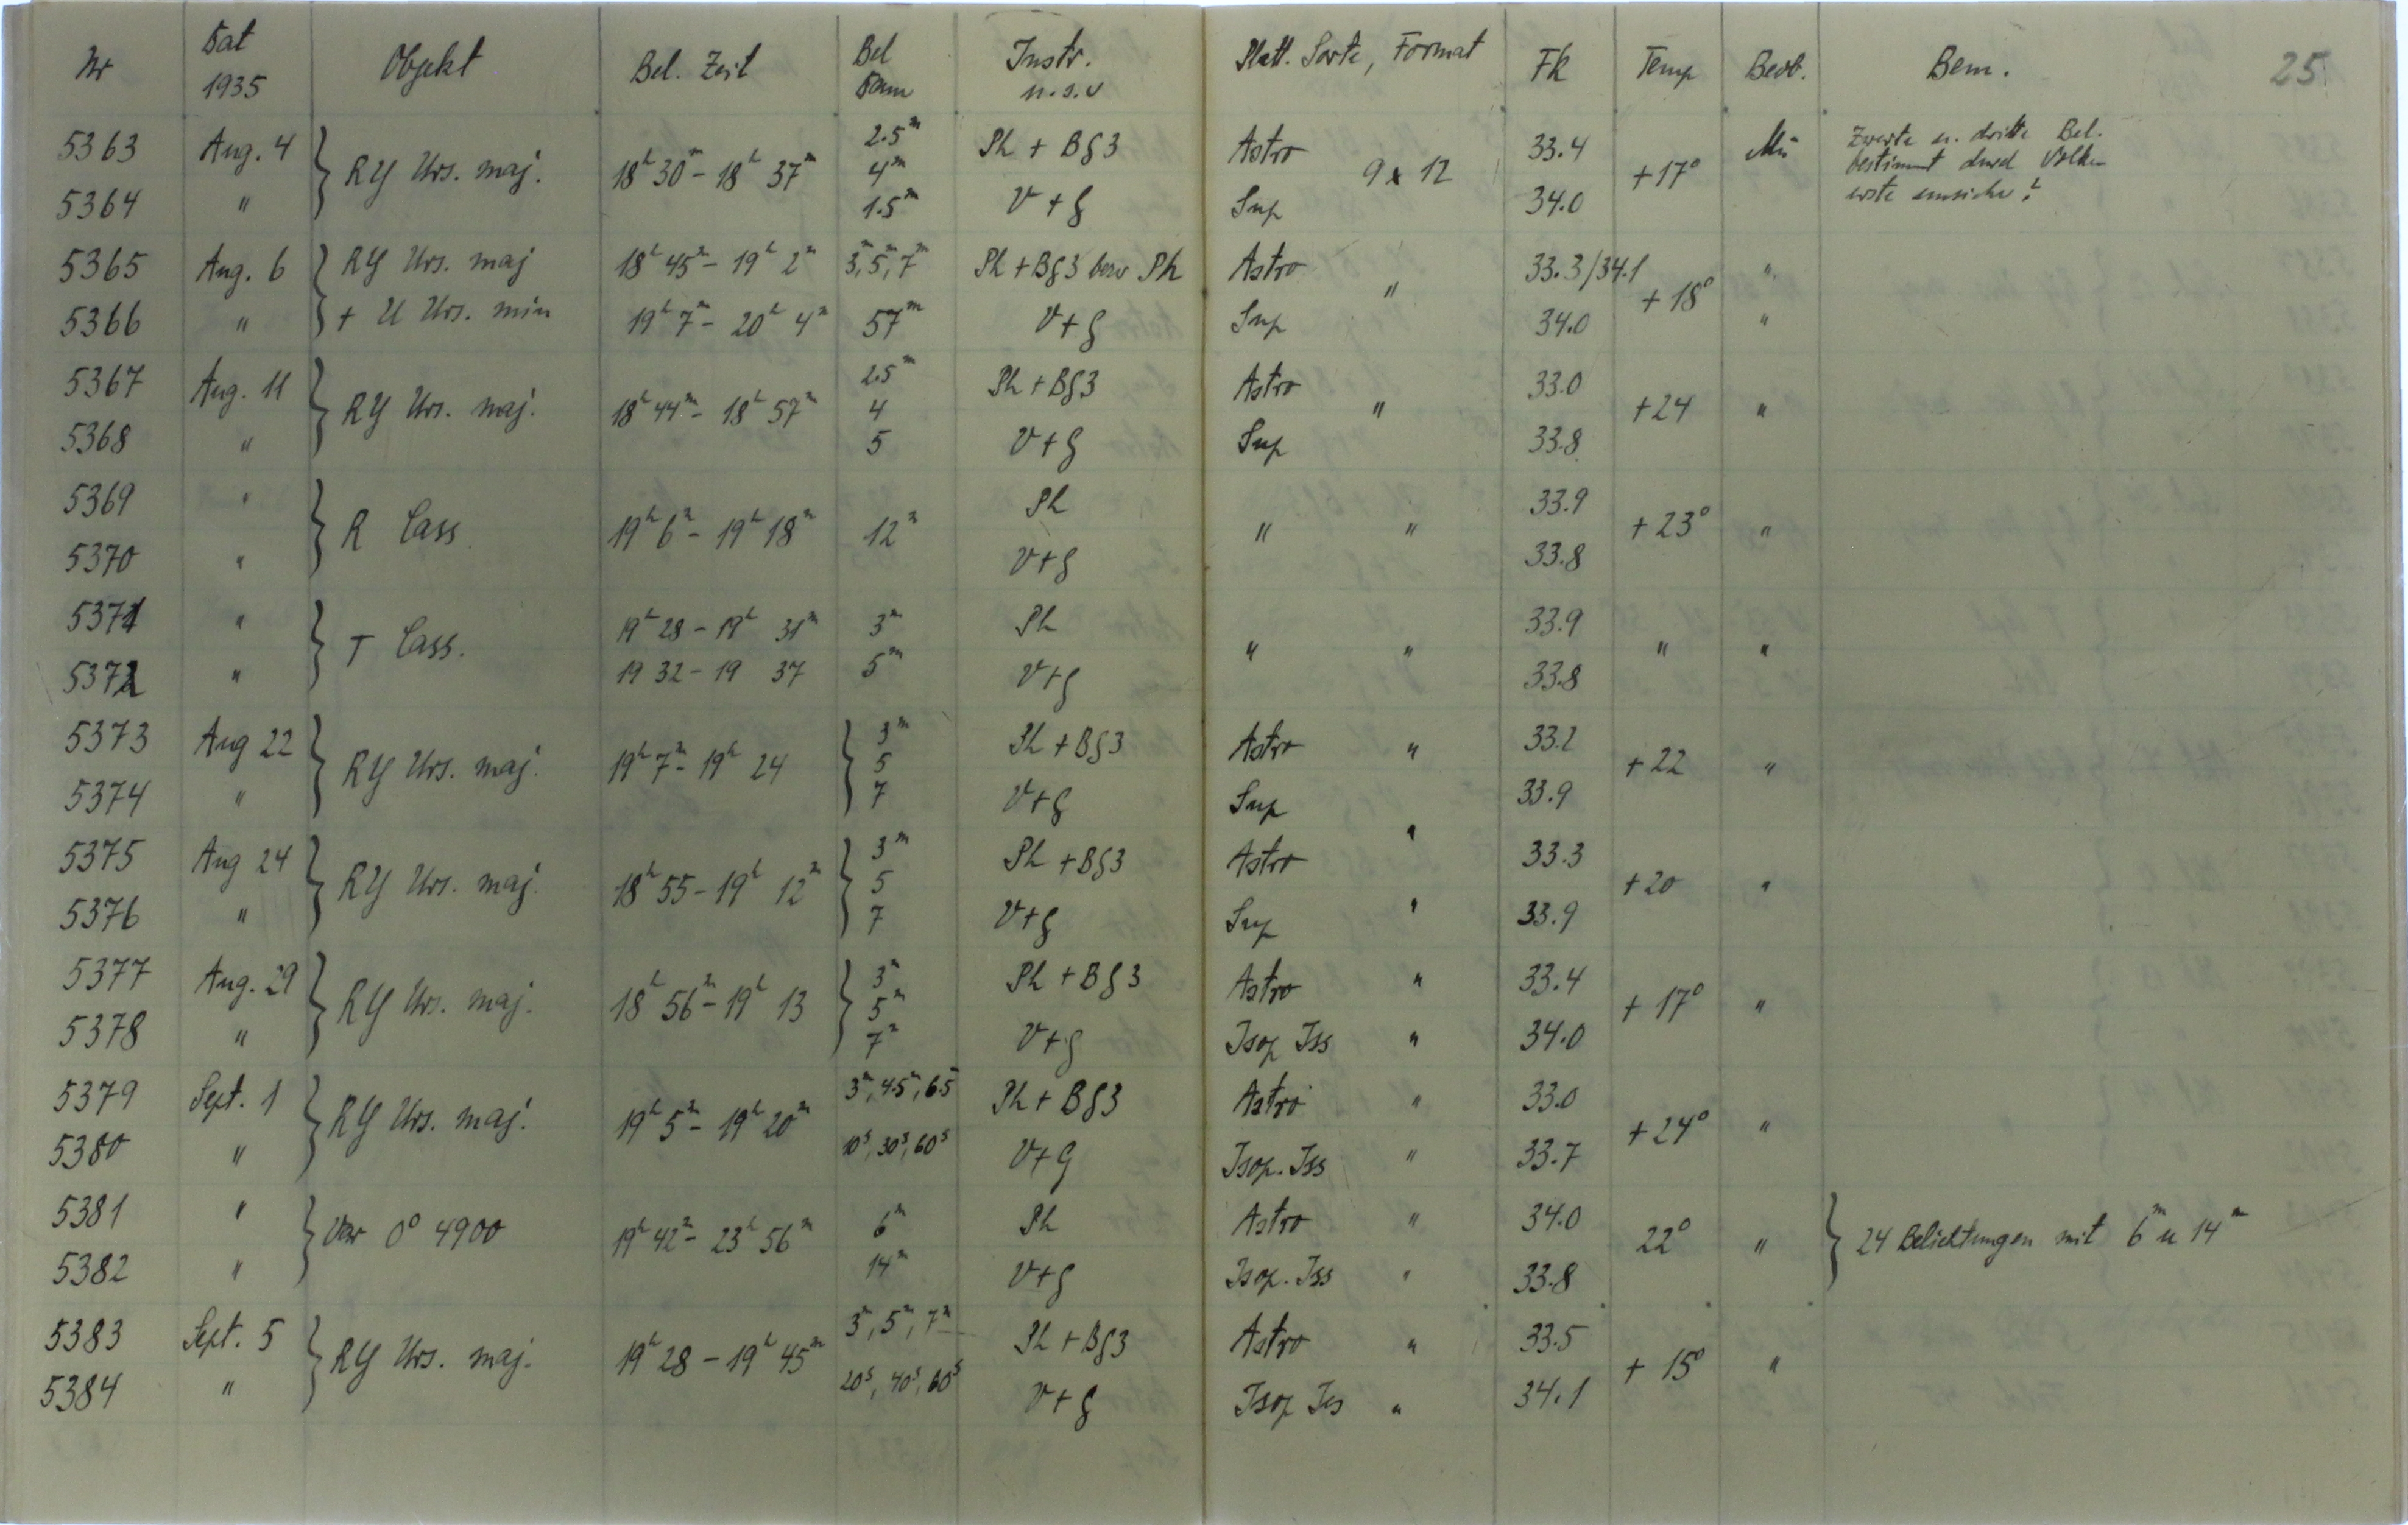 Nr Dat 1935 Objekt Bel. Zeit Bel Dauer Instr. u.s.w Platt. Sorte, Format Fk Temp Beob. Bem. 25
5363 Aug. 4 } RY Urs. maj. 18h 30m - 18h 37m 2.5m 4m 1.5m Ph + Bg3 Astro 9 x 12 33.4 +17° Mü Zweite u. dritte Bel. bestimmt durch Wolken erste unsicher?
5364 " V + G Sup 34.0
5365 Aug. 6 } RY Urs. maj 18h 45m - 19h 2m 3m, 5m, 7m Ph + Bg3 bzw Ph Astro " 33.3/34.1 +18° "
5366 " + U Urs. min 19h 7m - 20h 4m 57m V + G Sup 34.0 "
5367 Aug. 11 } RY Urs. maj. 18h 44m - 18h 57m 2.5m 4 5 Ph + Bg3 Astro " 33.0 +24 "
5368 " V + G Sup 33.8
5369 " } R Cass. 19h 6m - 19h 18m 12m Ph " " 33.9 +23° "
5370 " V+G 33.8
5371 " } T Cass. 19h 28 - 19h 31m 3m Ph " " 33.9 " "
5372 " 19 32 - 19 37 5m V+G 33.8
5373 Aug 22 } RY Urs. maj. 19h 7m - 19h 24 } 3m 5 7 Ph + Bg3 Astro " 33.2 +22 "
5374 " V+G Sup " 33.9
5375 Aug 24 } RY Urs. maj. 18h 55 - 19h 12m } 3m 5 7 Ph + Bg3 Astro 33.3 +20 "
5376 " V+G Sup " 33.9
5377 Aug. 29 } RY Urs. maj. 18h 56m - 19h 13 } 3m 5m 7m Ph + Bg3 Astro " 33.4 +17° "
5378 " V+G Isop Iss " 34.0
5379 Sept. 1 } RY Urs. maj. 19h 5m - 19h 20m 3m, 4.5m, 6.5m Ph + Bg3 Astro " 33.0 +24° "
5380 " 10s, 30s, 60s V+G Isop. Iss " 33.7
5381 " } Var 0° 4900 19h 42m - 23h 56m 6m Ph Astro " 34.0 22° " } 24 Belichtungen mit 6m u 14m
5382 " 14m V+G Isop. Iss " 33.8
5383 Sept. 5 } RY Urs. maj. 19h 28 - 19h 45m 3m, 5m, 7m Ph + Bg3 Astro " 33.5 +15° "
5384 " 20s, 40s, 60s V+G Isop Iss " 34.1